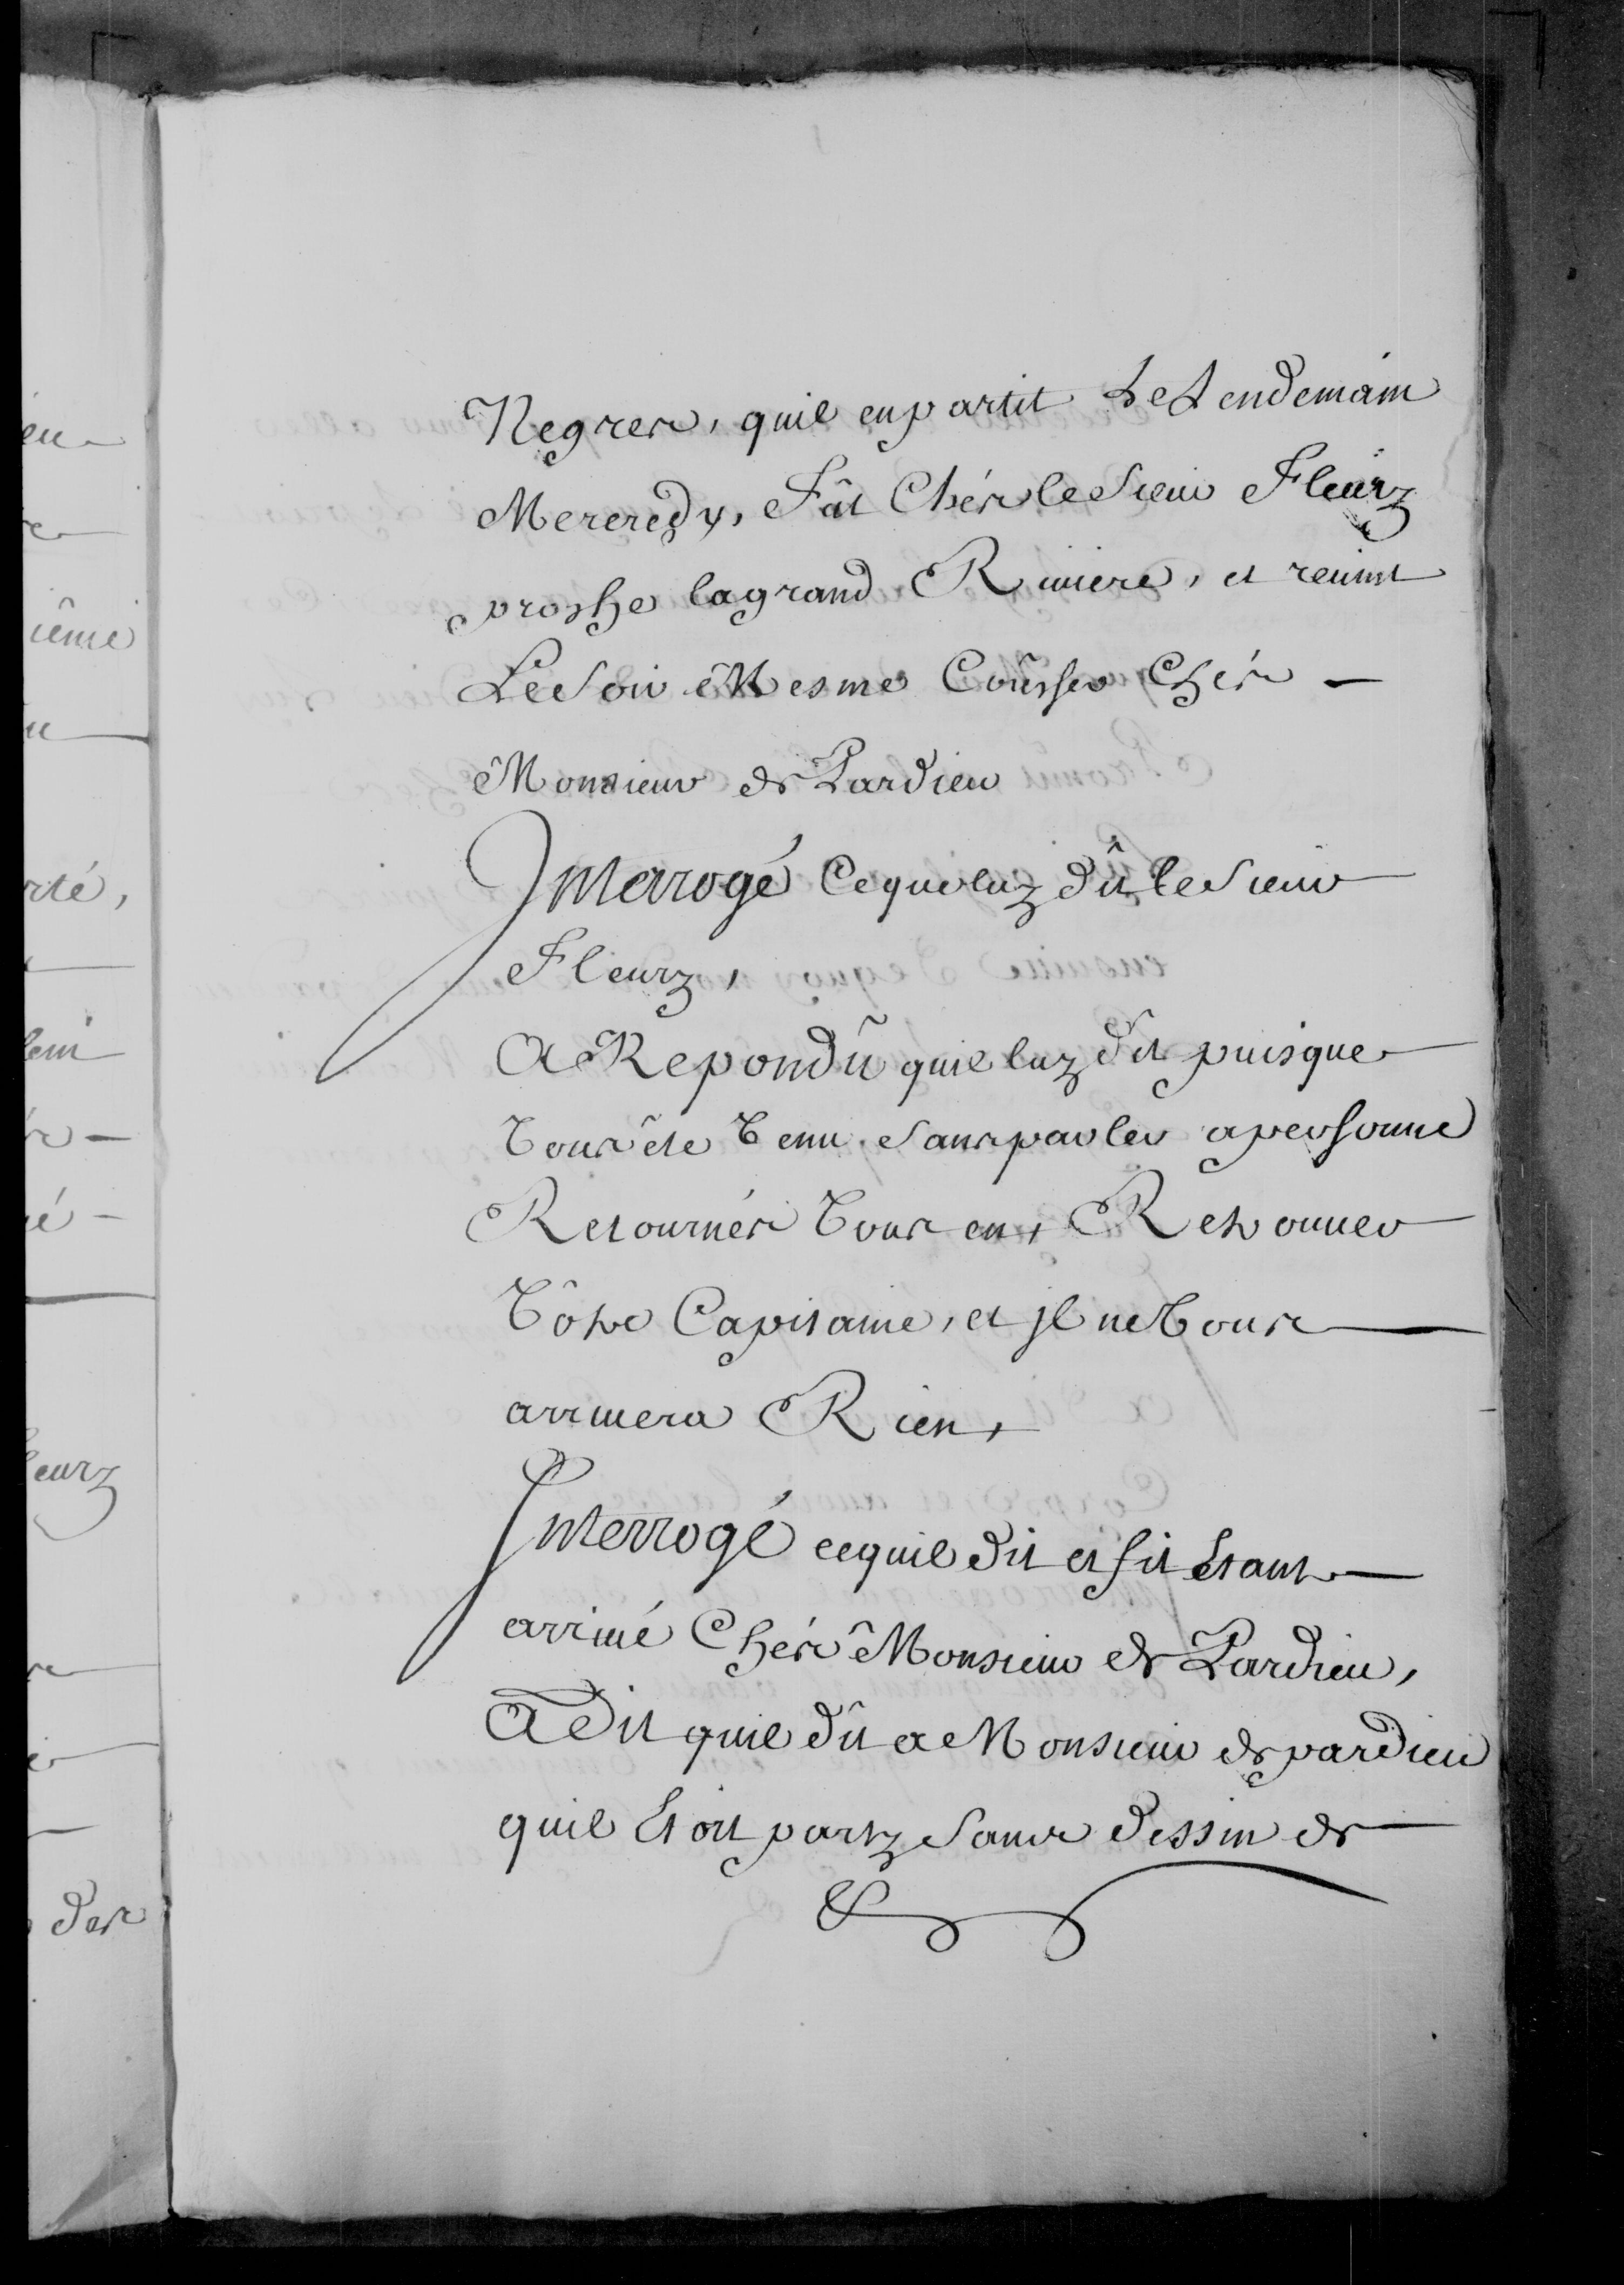 Negres, quil en partit Le Lendemain
Mercredy, Fût Chés le Sieur Fleury
proshe la grand Riviere, et revint
Le Soir Mesme Coûsher Chés
Monsieur de Pardieu
Interrogé Ce que luy dît le Sieur
Fleury,
A Repondû quil luy dit puisque
Vous éte Venu Sans parler a personne
Retournés Vous en, Retrouver
Vôtre Capitaine, et jl ne Vous
arrivera Rien,
Interrogé ce quil dit et fit Etant
arrivé Chés Monsieur de Pardieu,
A Dit quil dît a Monsieur de pardieu
quil Etoit party Sans dessin de
en
ième
rté,
é
leury
des